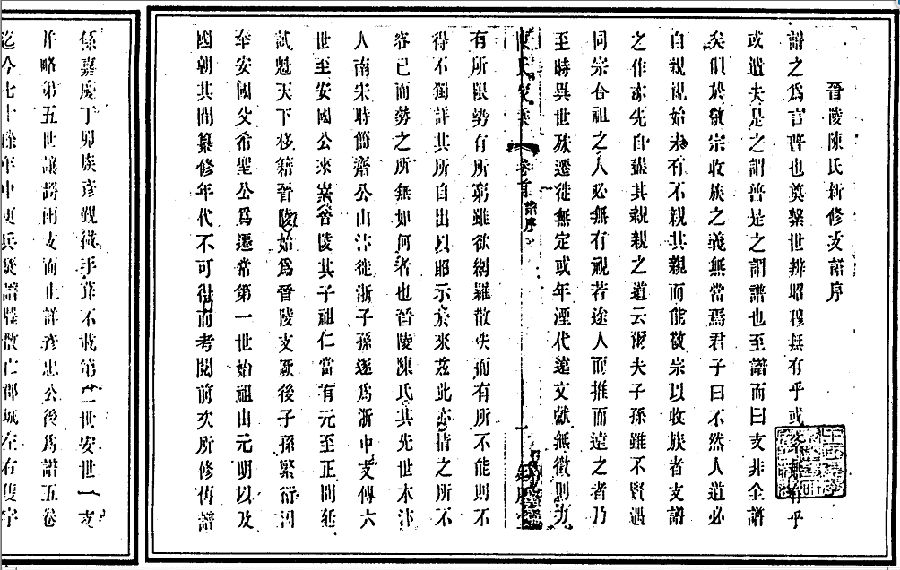 晉陵陳氏新修支譜序
譜之爲言普也奠繫世辨昭穆無有乎或無有乎
或遺夫是之謂普是之謂譜也至譜而曰支非全譜
矣似於敬宗收族之義無當焉君子曰不然人道必
自親親始未有不親其親而能敬宗以收族者支譜
之作亦先自盡其親親之道云爾夫子孫雖不賢遇
同宗合祖之人必無有視若途人而推而遠之者乃
至時異世殊遷徙無定或年湮代遠文獻無徵則力
卷首 譜序 一
有所限勢有所窮雖欲網羅散失而有所不能則不
得不獨詳其所自出以昭示於來茲此亦情之所不
容已而勢之所無如何者也晉陵陳氏其先世本汴
人南宋時簡齋公由汴徙浙子孫遂爲浙中支傳六
世至安國公來晉陵其子祖仁當有元至正間廷
試魁天下移籍晉陵始爲晉陵支厥後子孫繁衍
奉安國父希聖公爲遷常第一世始祖由元明以及
國朝其間纂修年代不可得而考閱前次所修舊譜
係嘉慶丁卯族彥手葺不載第一世安世一支
并略第五世讓爵支而止詳彥忠公後爲譜五卷
迄今七十餘年中更兵燹譜牒散亡郡城左右隻字